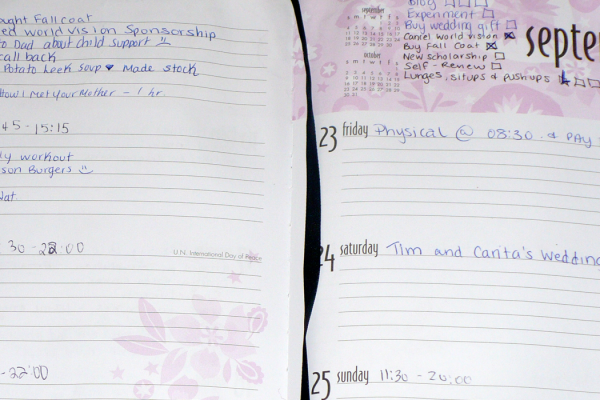 ought Fall coat
ed world vision Sponsorship
to Dad about child support
call back
Potato Leek Soup Made stock
How I Met Your Mother - 1 hr.
45 - 15:15
ly workout
son Burgers
Nat.
30 - 22:00
U.N. International Day of Peace
- 22:00
september
s m t w t f s
october
s m t w t f s
Blog
Experiment
Buy wedding gift
Cancel world vision
Buy Fall Coat
New scholarship
Self - Review
Lunges, situps & pushups
septe
23 friday Physical @ 08:30 & pay
24 saturday Tim and Carita's Wedding
25 sunday 11:30 - 20:00